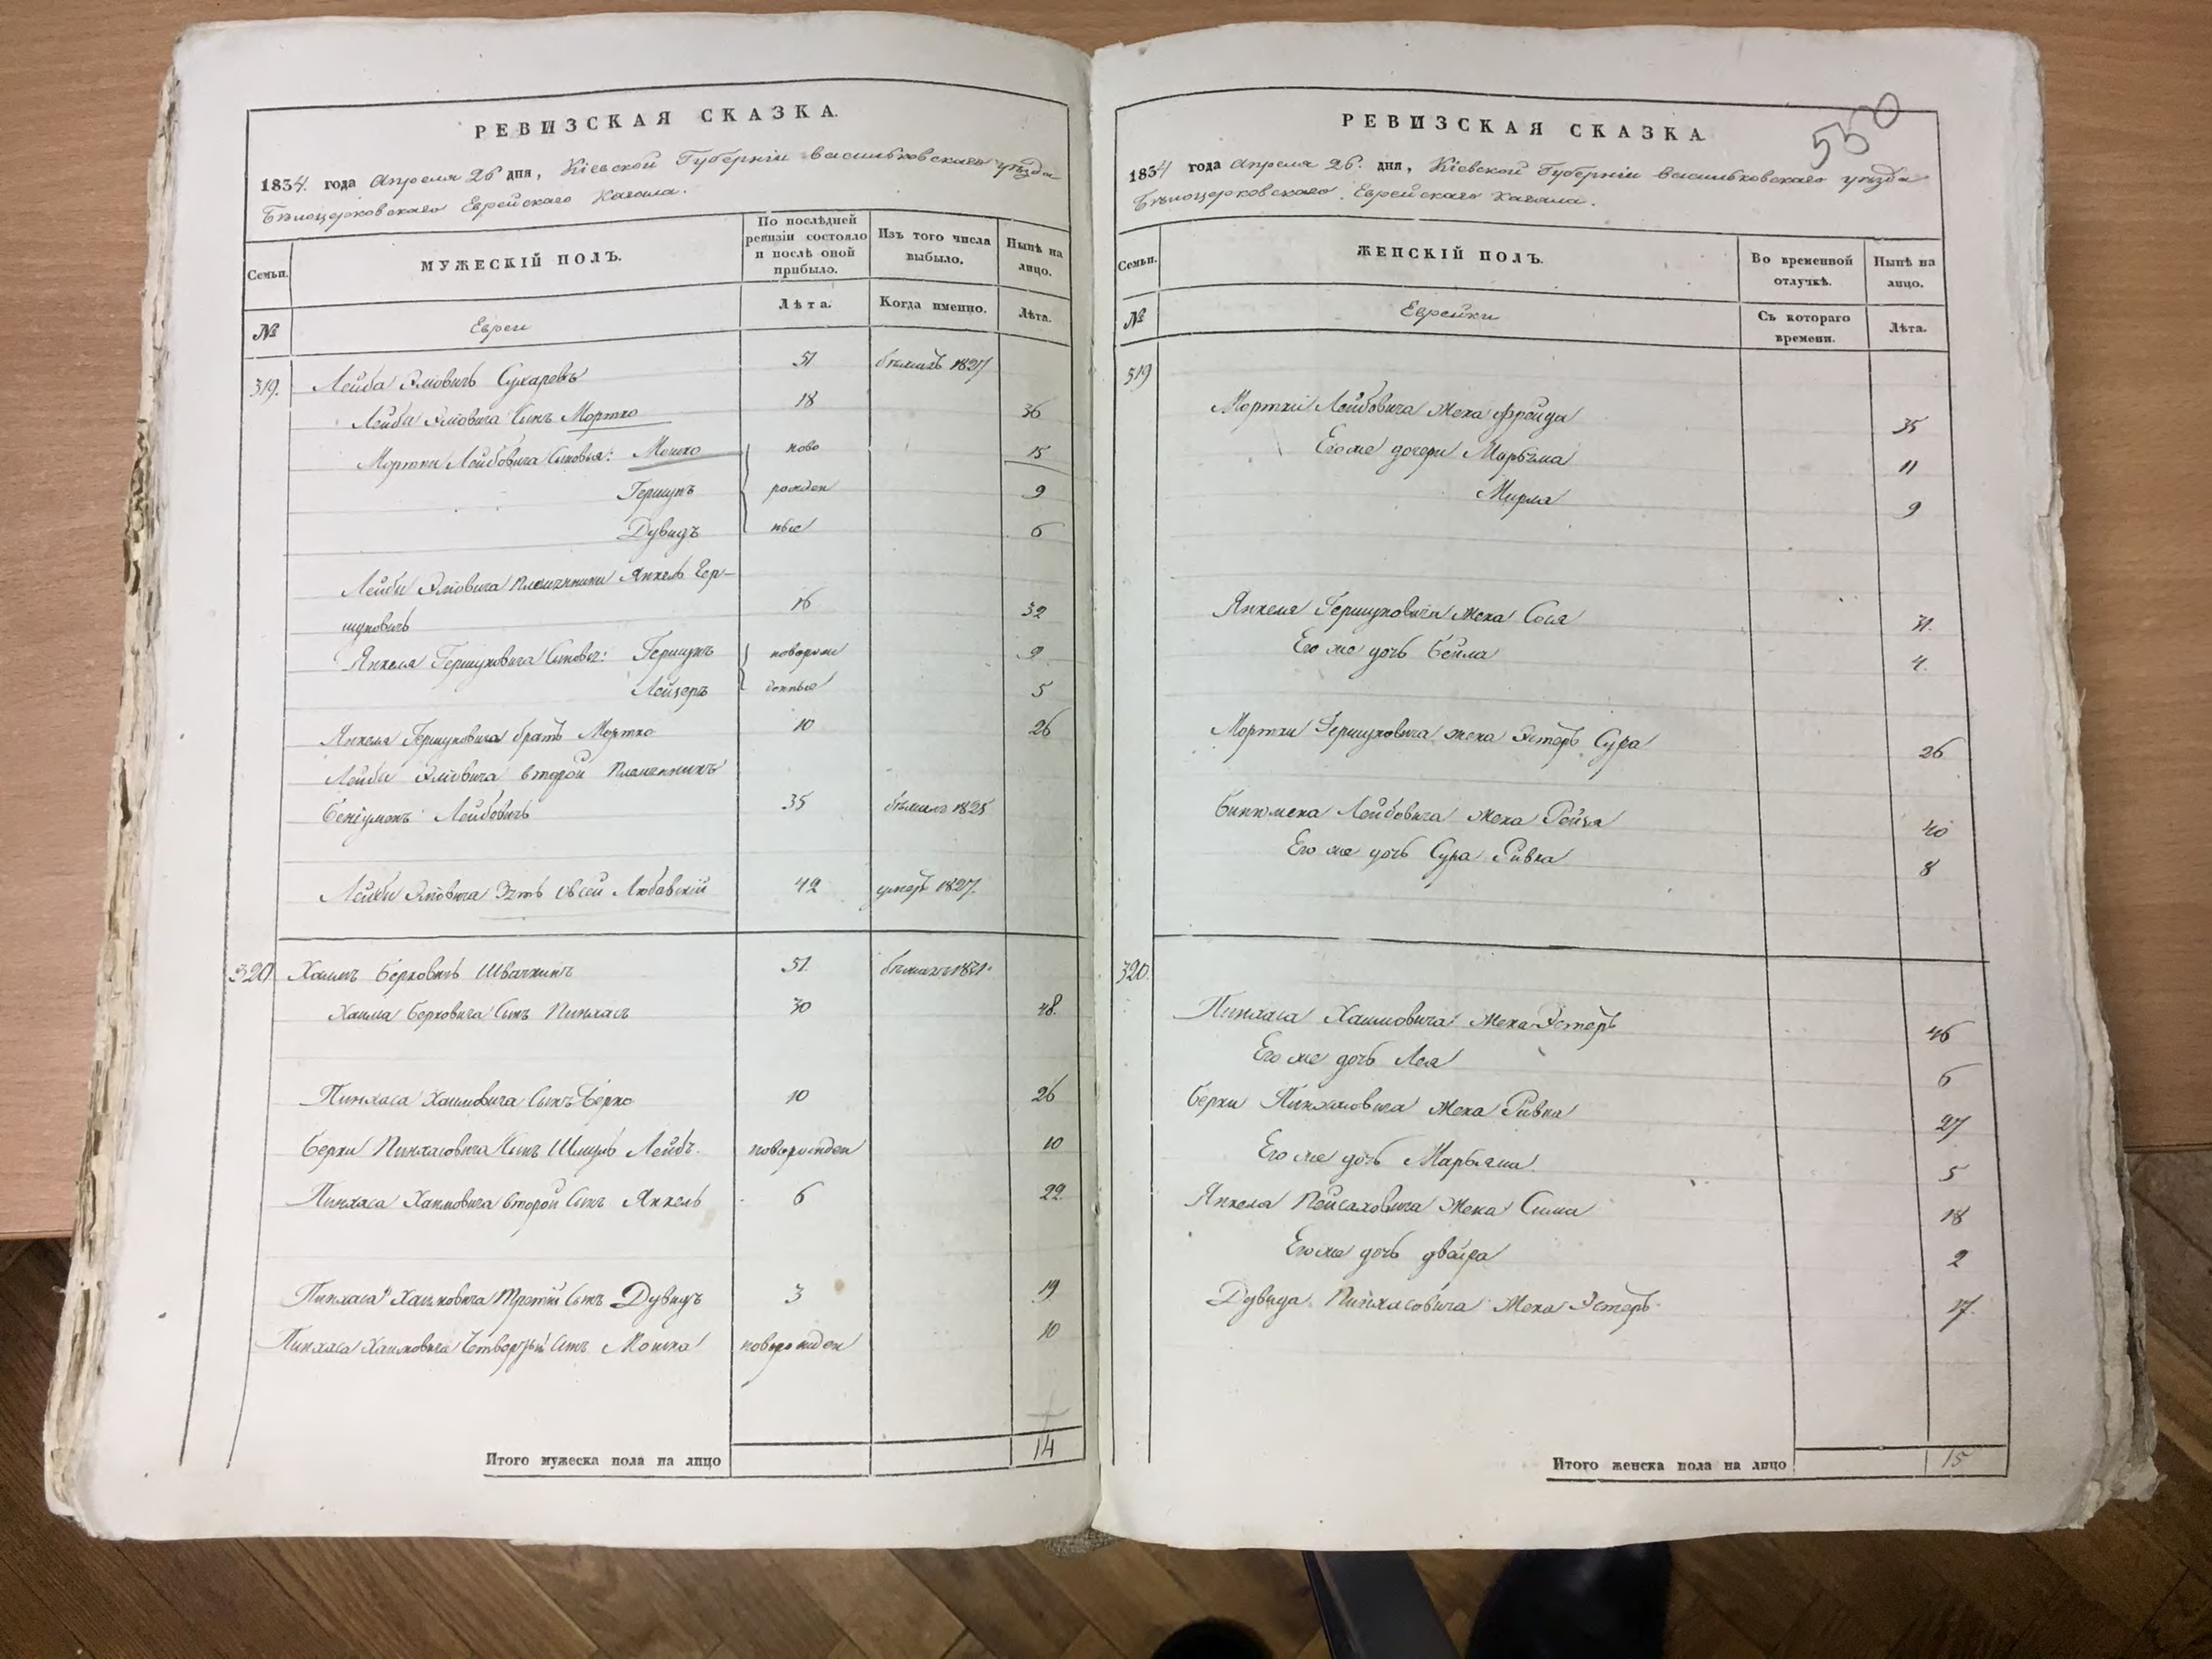 РЕВИЗСКАЯ СКАЗКА.
1834. года Апреля 26 дня, Кіевской Губерніи Васильковскаго уезда
Бѣлоцерковскаго Еврейскаго Кагала.
Семьи.
МУЖЕСКІЙ ПОЛЪ.
По послѣдней ревизіи состояло и послѣ оной прибыло.
Изъ того числа выбыло.
Нынѣ на лицо.
№
Евреи
Лѣта.
Когда именно.
Лѣта.
319. Лейба Сухаревъ 51 бѣжалъ 1827
Лейбы сынъ Мортко 18 36
Мортки Лейбовича сыновья: Мошко ново 15
Гершунъ рожден 9
Дувидъ ные 6
Лейбы племянники Янкель Гер-
шуновичь 16 32
Янкеля Гершуновича Гершунъ новорож 9
Лейзеръ денные 5
Янкеля Гершуновича братъ Мортко 10 26
Лейбы второй племянникъ
Лейбовичь 35 бѣжалъ 1825
Лейбы зять Овсей Любавскій 42 умеръ 1827.
320. Хаимъ Берковичь 51. бѣжалъ 1831.
Хаима Берковича сынъ Пинхасъ 30 48.
Пинхаса Хаимовича сынъ Берко 10 26
Берки Пинхасовича сынъ Шмуль Лейбъ. новорожден 10
Пинхаса Хаимовича второй сынъ Янкель 6 22.
Пинхаса Хаимовича третій сынъ Дувидъ 3 19
Пинхаса Хаимовича четвертый сынъ Мошка новорожден 10
Итого мужеска пола на лицо 14
550
РЕВИЗСКАЯ СКАЗКА
1834 года Апреля 26. дня, Кіевской Губерніи Васильковскаго уезда
Бѣлоцерковскаго Еврейскаго Кагала.
Семьи.
ЖЕНСКІЙ ПОЛЪ.
Во временной отлучкѣ.
Нынѣ на лицо.
№
Еврейки
Съ котораго времени.
Лѣта.
319
Мортки Лейбовича жена Фрейда 35
Его же дочери Марьяма 11
Мирля 9
Янкеля Гершуновича жена Сося 31.
Его же дочь Бейла 4.
Мортки Гершуновича жена Эстеръ Сура 26
Лейбовича жена Рейзя 40
Его же дочь Сура Ривка 8
320.
Пинхаса Хаимовича жена Эстеръ 46
Его же дочь Лея 6
Берки Пинхасовича жена Ривка 27
Его же дочь Марьяма 5
Янкеля Пейсаховича жена Сима 18
Его же дочь Двайра 2
Дувида Пинхасовича жена Эстеръ. 17.
Итого женска пола на лицо 15